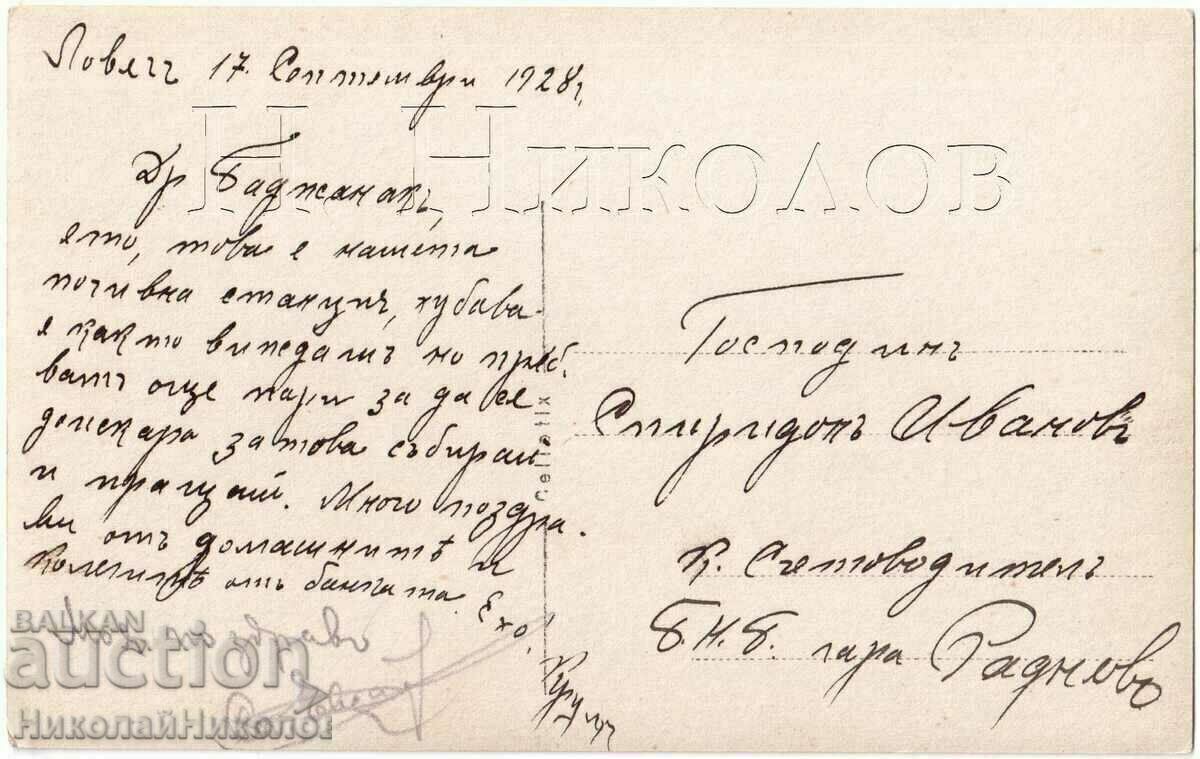 Ловечъ 17. Септември 1928 г.
Н. Николов
Др Баджанакъ,
ето, това е нашета
почивна станция, хубава
е както виждашъ но тряб.
ватъ още пари за да се
доискара затова събирай
и пращай. Много поздра.
ви отъ домашнитѣ и
колегитѣ отъ банката. Ехо!
поздрави
Cellotix
Господинъ
Спиридонъ Ивановъ
К. Счетоводитель
Б.Н.Б. гара Раднево
BALKAN
auction
НиколайНиколов